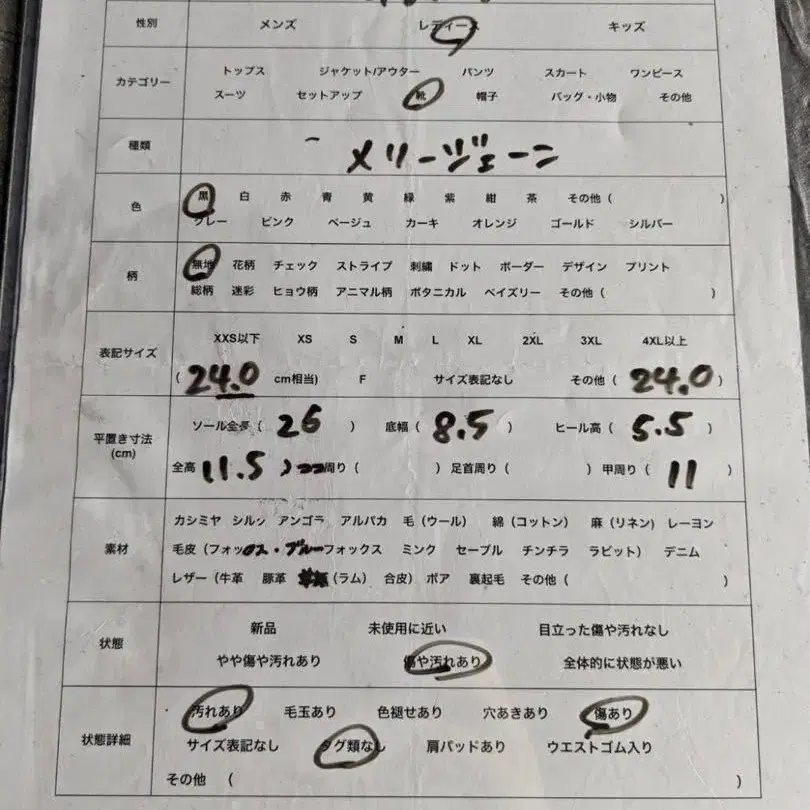 性別 メンズ レディース キッズ
カテゴリー
トップス ジャケット/アウター パンツ スカート ワンピース
スーツ セットアップ 靴 帽子 バッグ・小物 その他
種類 メリージェーン
色
黒 白 赤 青 黄 緑 紫 紺 茶 その他 ( )
グレー ピンク ベージュ カーキ オレンジ ゴールド シルバー
柄
無地 花柄 チェック ストライプ 刺繍 ドット ボーダー デザイン プリント
総柄 迷彩 ヒョウ柄 アニマル柄 ボタニカル ペイズリー その他 ( )
表記サイズ
XXS以下 XS S M L XL 2XL 3XL 4XL以上
( 24.0 cm相当) F サイズ表記なし その他 ( 24.0 )
平置き寸法
(cm)
ソール全長 ( 26 ) 底幅 ( 8.5 ) ヒール高 ( 5.5 )
全高 11.5 ) 周り ( ) 足首周り ( ) 甲周り ( 11 )
素材
カシミヤ シルク アンゴラ アルパカ 毛 (ウール) 綿 (コットン) 麻 (リネン) レーヨン
毛皮 (フォックス・ブルーフォックス ミンク セーブル チンチラ ラビット) デニム
レザー (牛革 豚革 (ラム) 合皮) ボア 裏起毛 その他 ( )
状態
新品 未使用に近い 目立った傷や汚れなし
やや傷や汚れあり 傷や汚れあり 全体的に状態が悪い
状態詳細
汚れあり 毛玉あり 色褪せあり 穴あきあり 傷あり
サイズ表記なし タグ類なし 肩パッドあり ウエストゴム入り
その他 ( )